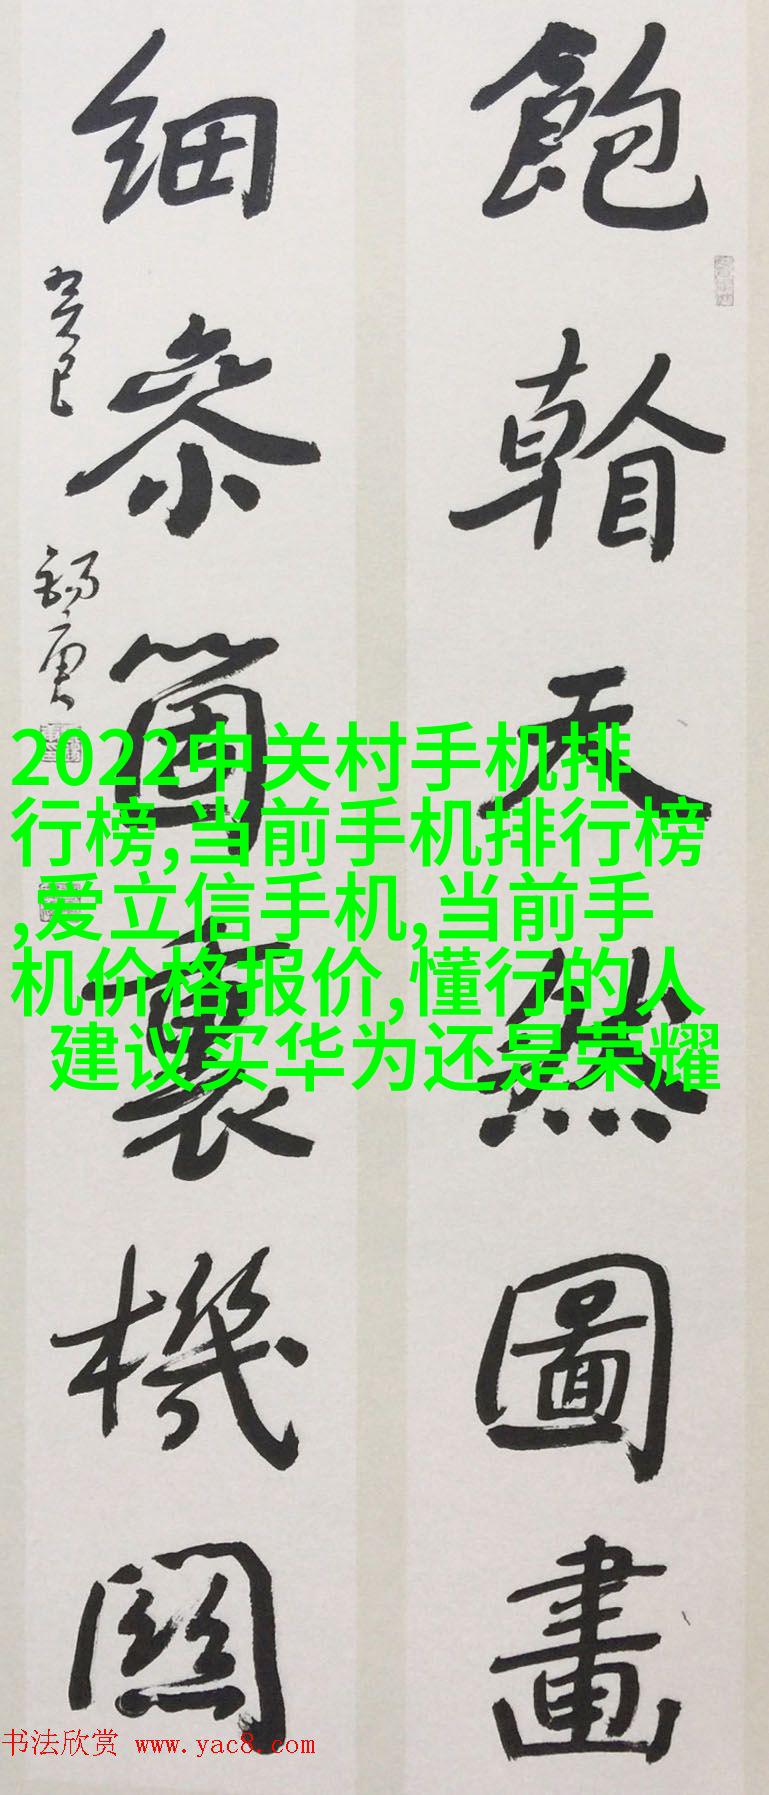 飽天然圖畫
細參箇裏機關
癸巳
2022中关村手机排
行榜,当前手机排行榜
,爱立信手机,当前手
机价格报价,懂行的人
建议买华为还是荣耀
书法欣赏 www.yac8.com